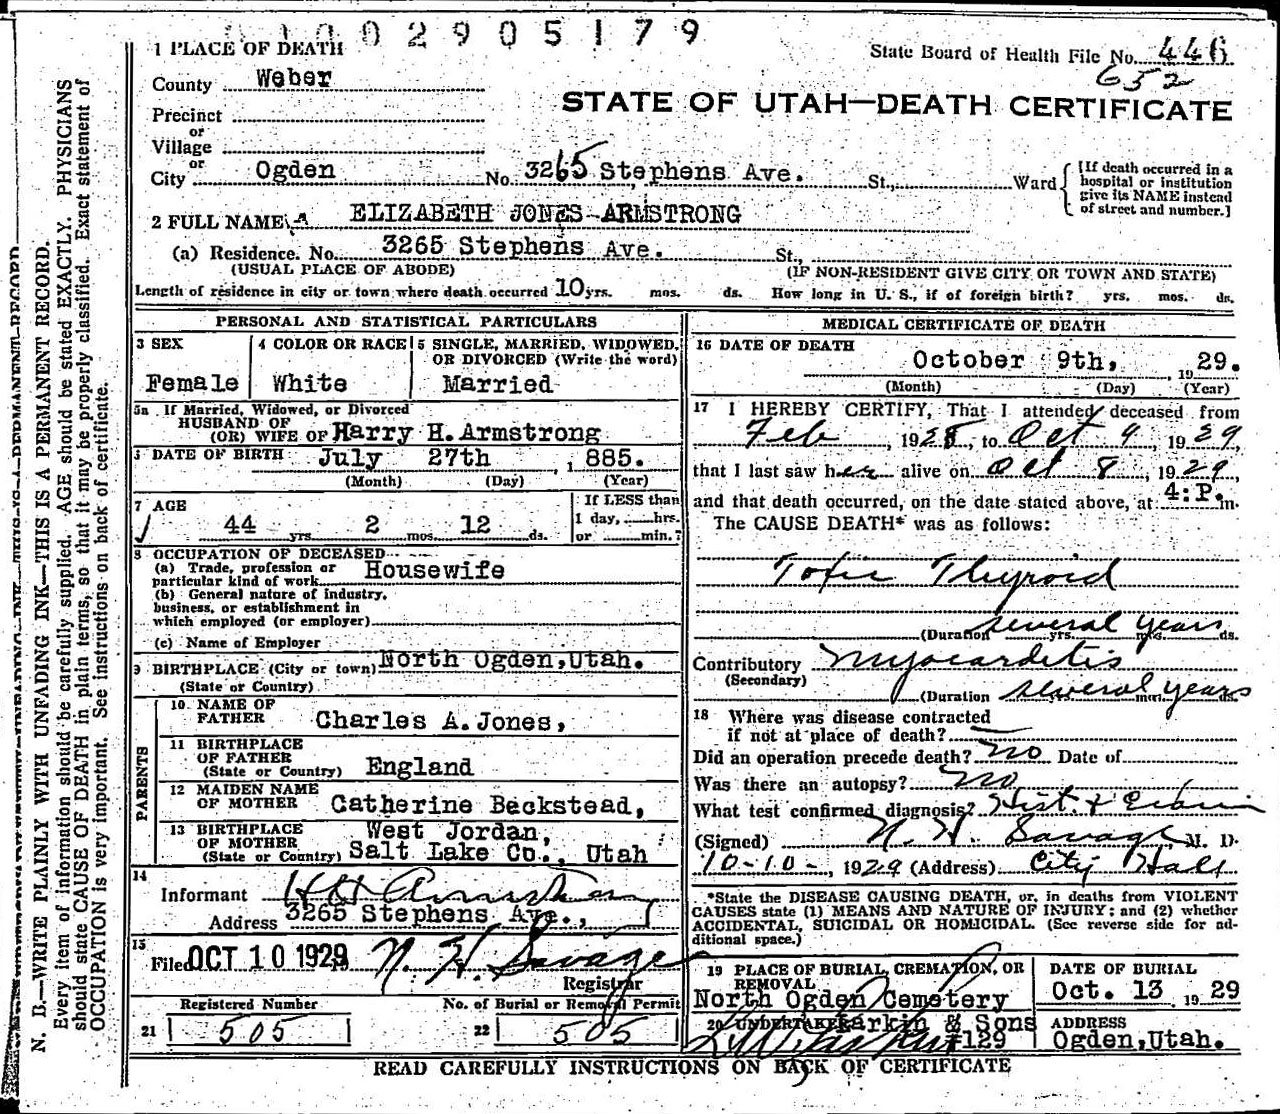 0 1 0 0 2 9 0 5 1 7 9
1 PLACE OF DEATH
State Board of Health File No. 446
652
County Weber
STATE OF UTAH—DEATH CERTIFICATE
Precinct
or
Village
or
City Ogden No. 3265 Stephens Ave. St., Ward
[If death occurred in a
hospital or institution
give its NAME instead
of street and number.]
2 FULL NAME ELIZABETH JONES ARMSTRONG
(a) Residence. No. 3265 Stephens Ave. St.,
(USUAL PLACE OF ABODE) (IF NON-RESIDENT GIVE CITY OR TOWN AND STATE)
Length of residence in city or town where death occurred 10 yrs. mos. ds. How long in U. S., if of foreign birth? yrs. mos. ds.
PERSONAL AND STATISTICAL PARTICULARS
3 SEX
Female
4 COLOR OR RACE
White
5 SINGLE, MARRIED, WIDOWED,
OR DIVORCED (Write the word)
Married
5a If Married, Widowed, or Divorced
HUSBAND OF
(OR) WIFE OF Harry H. Armstrong
DATE OF BIRTH July 27th , 1885.
(Month) (Day) (Year)
7 AGE
44 yrs. 2 mos. 12 ds.
If LESS than
1 day, hrs.
or min.?
8 OCCUPATION OF DECEASED
(a) Trade, profession or
particular kind of work Housewife
(b) General nature of industry,
business, or establishment in
which employed (or employer)
(c) Name of Employer
9 BIRTHPLACE (City or town) North Ogden, Utah.
(State or Country)
PARENTS
10 NAME OF
FATHER Charles A. Jones,
11 BIRTHPLACE
OF FATHER
(State or Country) England
12 MAIDEN NAME
OF MOTHER Catherine Beckstead,
13 BIRTHPLACE
OF MOTHER
(State or Country) West Jordan,
Salt Lake Co., Utah
14
Informant H H Armstrong
Address 3265 Stephens Ave.,
15
Filed OCT 10 1929 N. H. Savage
Registrar
Registered Number No. of Burial or Removal Permit
21 505 22 505
MEDICAL CERTIFICATE OF DEATH
16 DATE OF DEATH
October 9th, , 1929.
(Month) (Day) (Year)
17 I HEREBY CERTIFY, That I attended deceased from
Feb , 1928, to Oct 9 , 1929,
that I last saw her alive on Oct 8 , 1929,
and that death occurred, on the date stated above, at 4:P. m.
The CAUSE DEATH* was as follows:
Toxic Thyroid
(Duration several years yrs. mos. ds.
Contributory Myocarditis
(Secondary)
(Duration several years mos. ds.
18 Where was disease contracted
if not at place of death? —
Did an operation precede death? no Date of
Was there an autopsy? no
What test confirmed diagnosis? Hist. &
(Signed) N. H. Savage, M. D.
10-10-, 1929 (Address) City Hall
*State the DISEASE CAUSING DEATH, or, in deaths from VIOLENT
CAUSES state (1) MEANS AND NATURE OF INJURY; and (2) whether
ACCIDENTAL, SUICIDAL OR HOMICIDAL. (See reverse side for ad-
ditional space.)
19 PLACE OF BURIAL, CREMATION, OR
REMOVAL
North Ogden Cemetery
DATE OF BURIAL
Oct. 13 1929
20 UNDERTAKER Larkin & Sons
#129
ADDRESS
Ogden, Utah.
READ CAREFULLY INSTRUCTIONS ON BACK OF CERTIFICATE
N. B.—WRITE PLAINLY WITH UNFADING INK—THIS IS A PERMANENT RECORD.
Every item of information should be carefully supplied. AGE should be stated EXACTLY. PHYSICIANS
should state CAUSE OF DEATH in plain terms, so that it may be properly classified. Exact statement of
OCCUPATION is very important. See instructions on back of certificate.